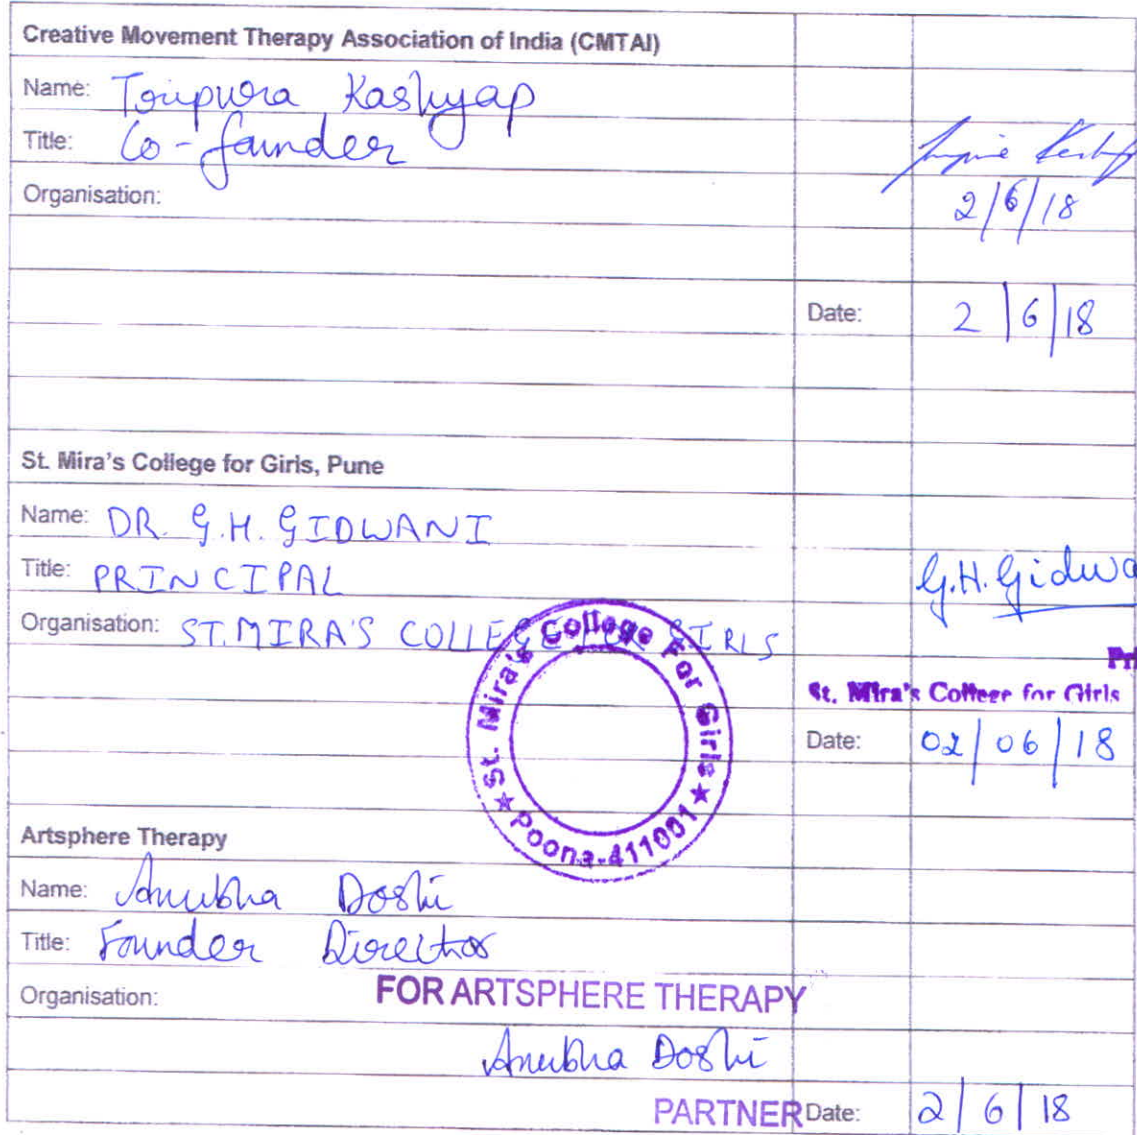 Creative Movement Therapy Association of India (CMTAI)
Name: Tripura Kashyap
Title: Co-founder
Organisation:
2/6/18
Date: 2/6/18
St. Mira's College for Girls, Pune
Name: DR. G.H. GIDWANI
Title: PRINCIPAL
G.H. Gidwa
Organisation: ST. MIRA'S COLLEGE FOR GIRLS
Pri
St. Mira's College for Girls
St. Mira's College For Girls
Poona-411001
Date: 02/06/18
Artsphere Therapy
Name: Anubha Doshi
Title: Founder Director
Organisation: FOR ARTSPHERE THERAPY
Anubha Doshi
PARTNER Date: 2/6/18